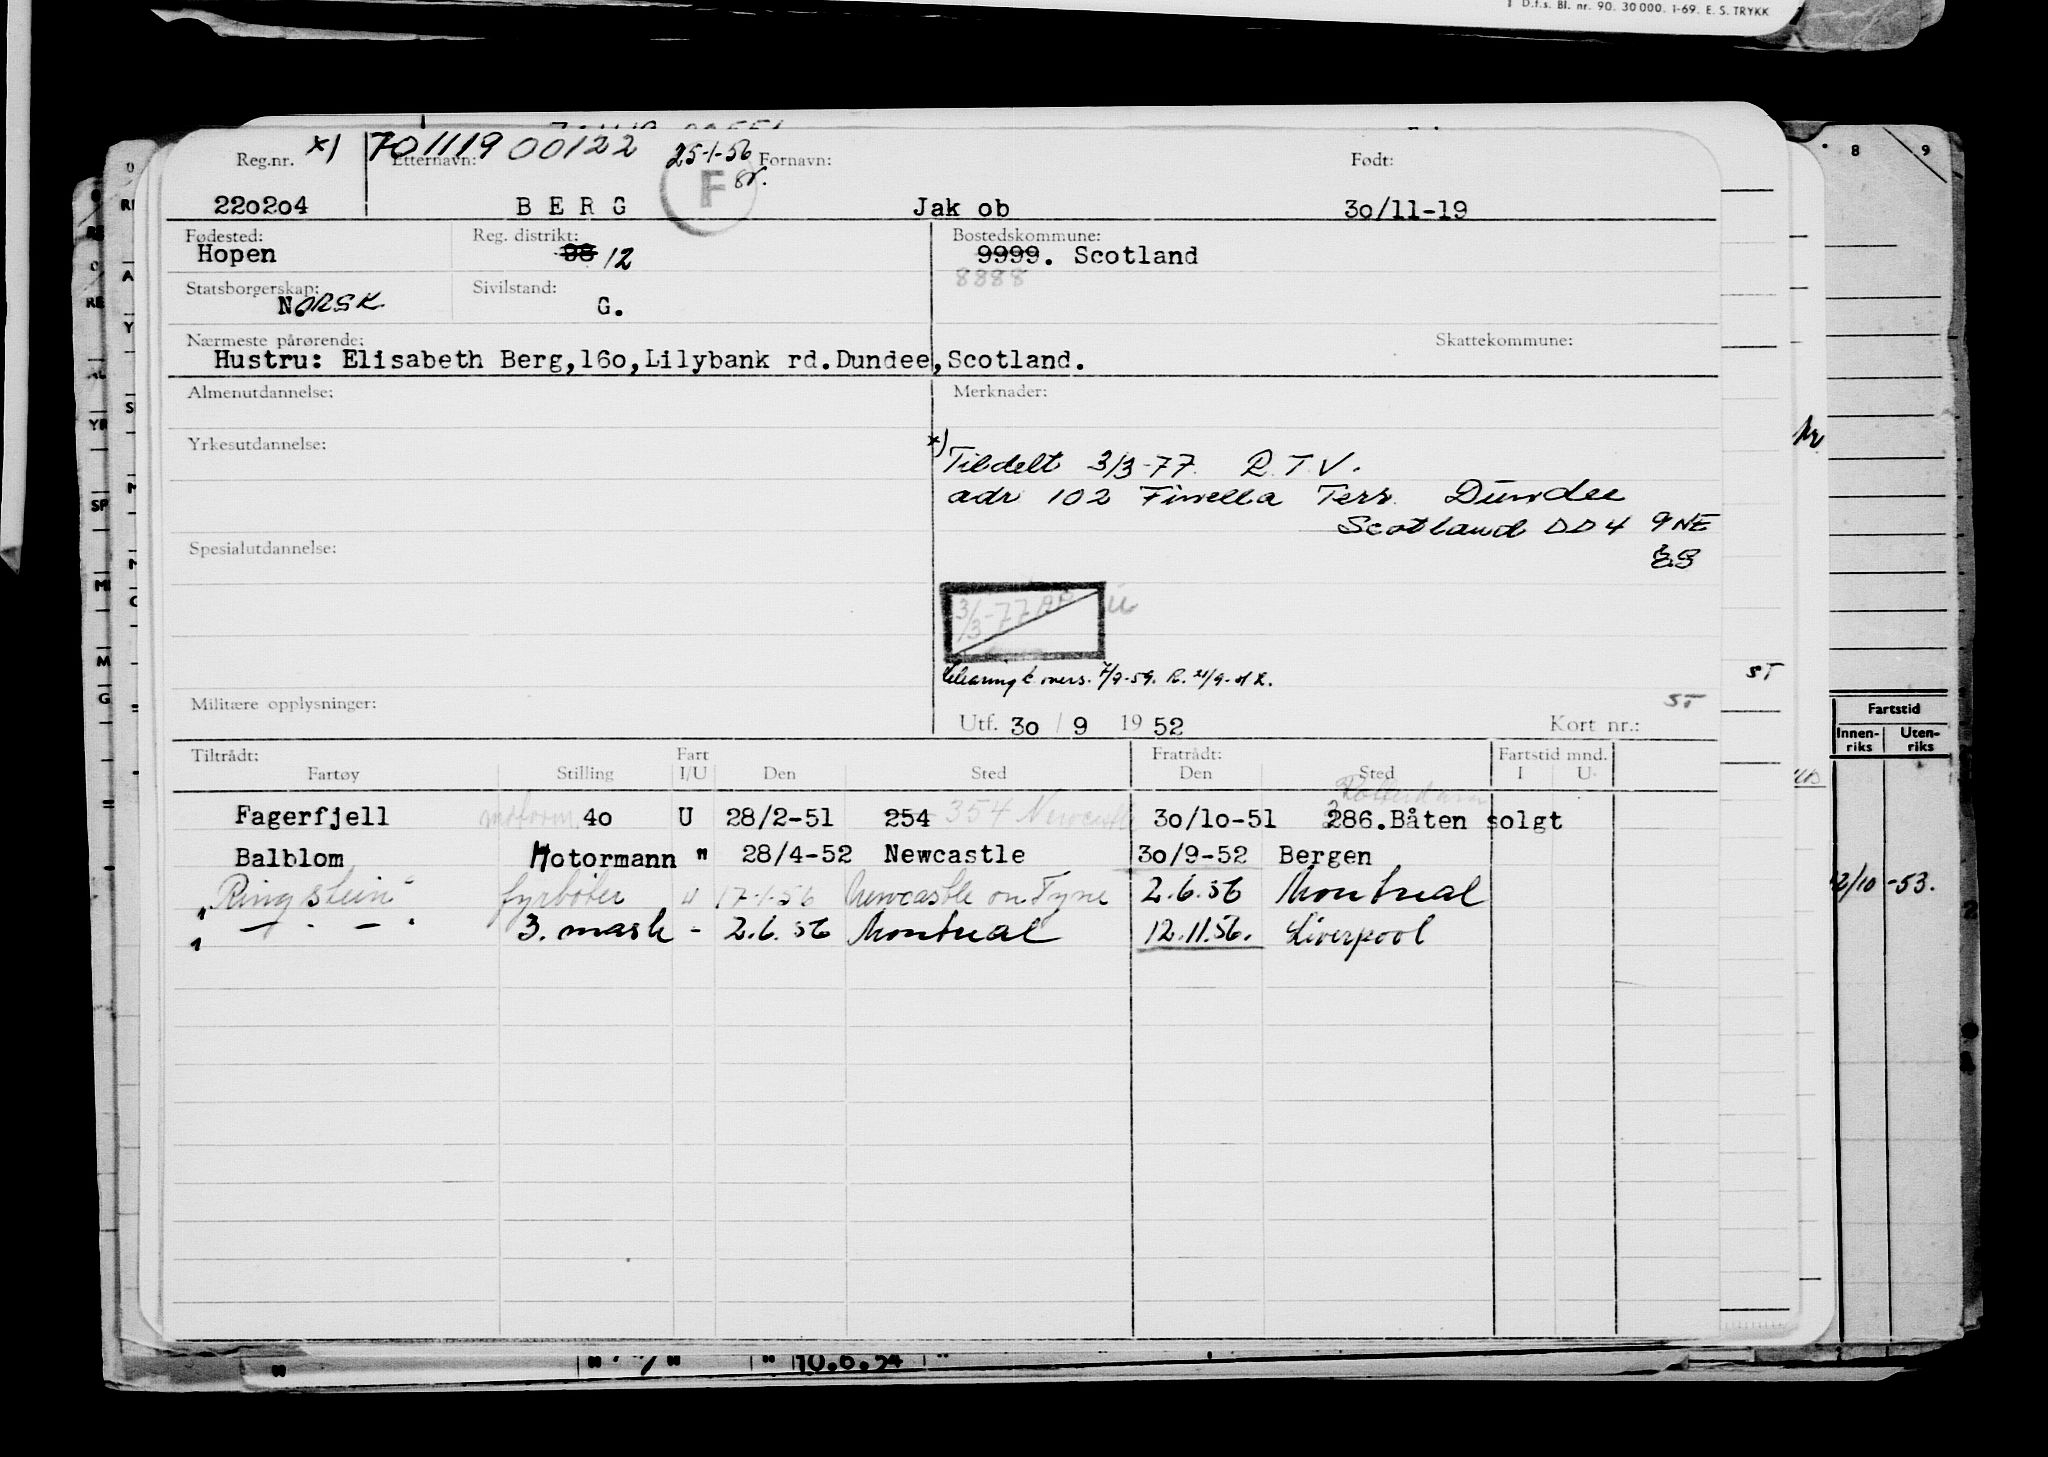 D.f.s. Bl. nr. 90. 30 000. 1-69. E. S. TRYKK
Reg.nr. x) 701119 00122 25-1-56
Etternavn: Fornavn: Født:
F
220204 BERG Jakob 30/11-19
Fødested: Reg. distrikt: Bostedskommune:
Hopen 98 12 9999. Scotland
8888
Statsborgerskap: Sivilstand:
NORSK G.
Nærmeste pårørende: Skattekommune:
Hustru: Elisabeth Berg,160,Lilybank rd.Dundee,Scotland.
Almenutdannelse: Merknader:
Yrkesutdannelse:
x) Tildelt 3/3-77. R.T.V.
adr 102 Finella Terr. Dundee
Scotland DD4 9NE
Spesialutdannelse:
3/3-77
Militære opplysninger:
ST
ST
Utf. 30 / 9 1952 Kort nr.:
Tiltrådt: Fart Fratrådt: Fartstid mnd.
Fartøy Stilling I/U Den Sted Den Sted I U
Rotterdam
Fagerfjell 40 U 28/2-51 254 354 Newcastle 30/10-51 286.Båten solgt
Balblom Motormann " 28/4-52 Newcastle 30/9-52 Bergen
"Ringstein" fyrbøter u 17-1-56 Newcastle on Tyne 2.6.56 Montreal
" — . — . 3. mask - 2.6.56 Montreal 12.11.56. Liverpool
8 9
Fartstid
Innen-riks Uten-riks
12/10 -53.
10.6.54